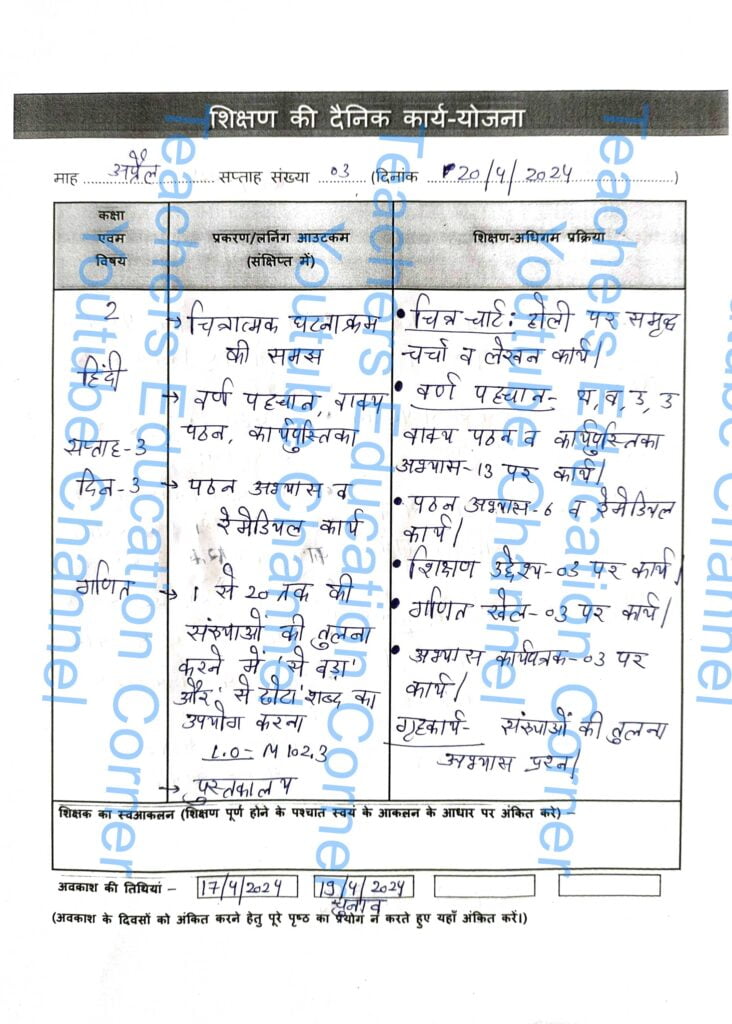 शिक्षण की दैनिक कार्य-योजना
माह ...अप्रैल... सप्ताह संख्या ..03.. (दिनांक ..20/4/2024..)
कक्षा
एवम
विषय
प्रकरण/लर्निंग आउटकम
(संक्षिप्त में)
शिक्षण-अधिगम प्रक्रिया
2
हिंदी
सप्ताह-3
दिन-3
गणित
→ चित्रात्मक घटनाक्रम
की समझ
→ वर्ण पहचान, वाक्य
पठन, कार्यपुस्तिका
→ पठन अभ्यास व
रेमेडियल कार्य
→ 1 से 20 तक की
संख्याओं की तुलना
करने में 'से बड़ा'
और 'से छोटा' शब्द का
उपयोग करना
L.O- M 102.3
→ पुस्तकालय
• चित्र-चार्ट: होली पर समृद्ध
चर्चा व लेखन कार्य।
• वर्ण पहचान- थ, व, उ, उ
वाक्य पठन व कार्यपुस्तिका
अभ्यास-13 पर कार्य।
• पठन अभ्यास-6 व रेमेडियल
कार्य।
• शिक्षण उद्देश्य-03 पर कार्य।
• गणित खेल-03 पर कार्य।
• अभ्यास कार्यपत्रक-03 पर
कार्य।
गृहकार्य- संख्याओं की तुलना
अभ्यास प्रश्न।
शिक्षक का स्वआकलन (शिक्षण पूर्ण होने के पश्चात स्वयं के आकलन के आधार पर अंकित करें) –
अवकाश की तिथियां – 17/4/2024 19/4/2024
चुनाव
(अवकाश के दिवसों को अंकित करने हेतु पूरे पृष्ठ का प्रयोग न करते हुए यहाँ अंकित करें।)
Teachers Education Corner
Youtube Channel
Teachers Education Corner
Youtube Channel
Teachers Education Corner
Youtube Channel